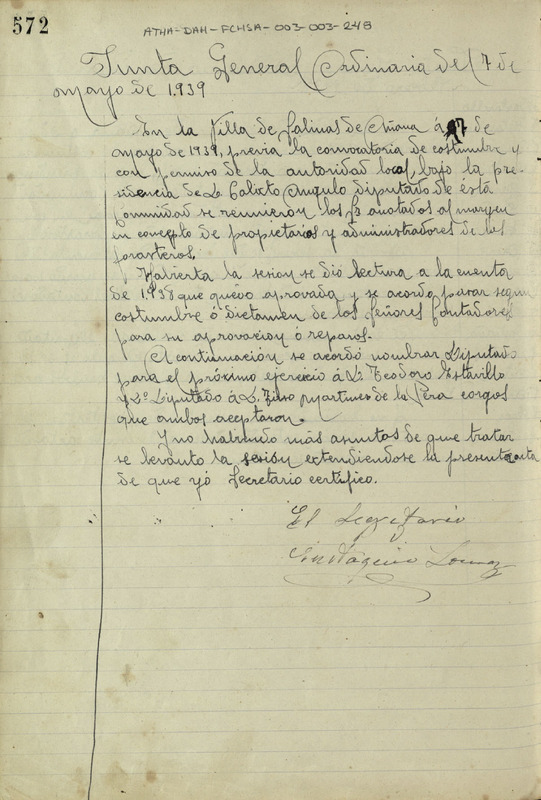 572
ATHA-DAH-FCHSA-003-003-248
Junta General Ordinaria del 7 de
mayo de 1939
En la Villa de Salinas de Añana á 7 de
mayo de 1939, previa la convocatoria de costumbre y
con permiso de la autoridad local, bajo la pre-
sidencia de D. Calixto Angulo diputado de ésta
Comunidad se reunieron los Srs anotados al margen
en concepto de propietarios y administradores de los
forasteros.
Habierta la sesion se dió lectura a la cuenta
de 1938 que quedo aprovada y se acordo pasar segun
costumbre ó dictamen de los Señores Contadores
para su aprovacion ó reparos.
A continuación se acordó nombrar Diputado
para el próximo ejercicio á D. Teodoro Estavillo
y 2º Diputado á D. Martinez de la Pera cargos
que ambos aceptaron.
Y no habiendo más asuntos de que tratar
se levanto la sesión extendiendose la presente acta
de que yó Secretario certifico.
El Secretario
Eustaquio